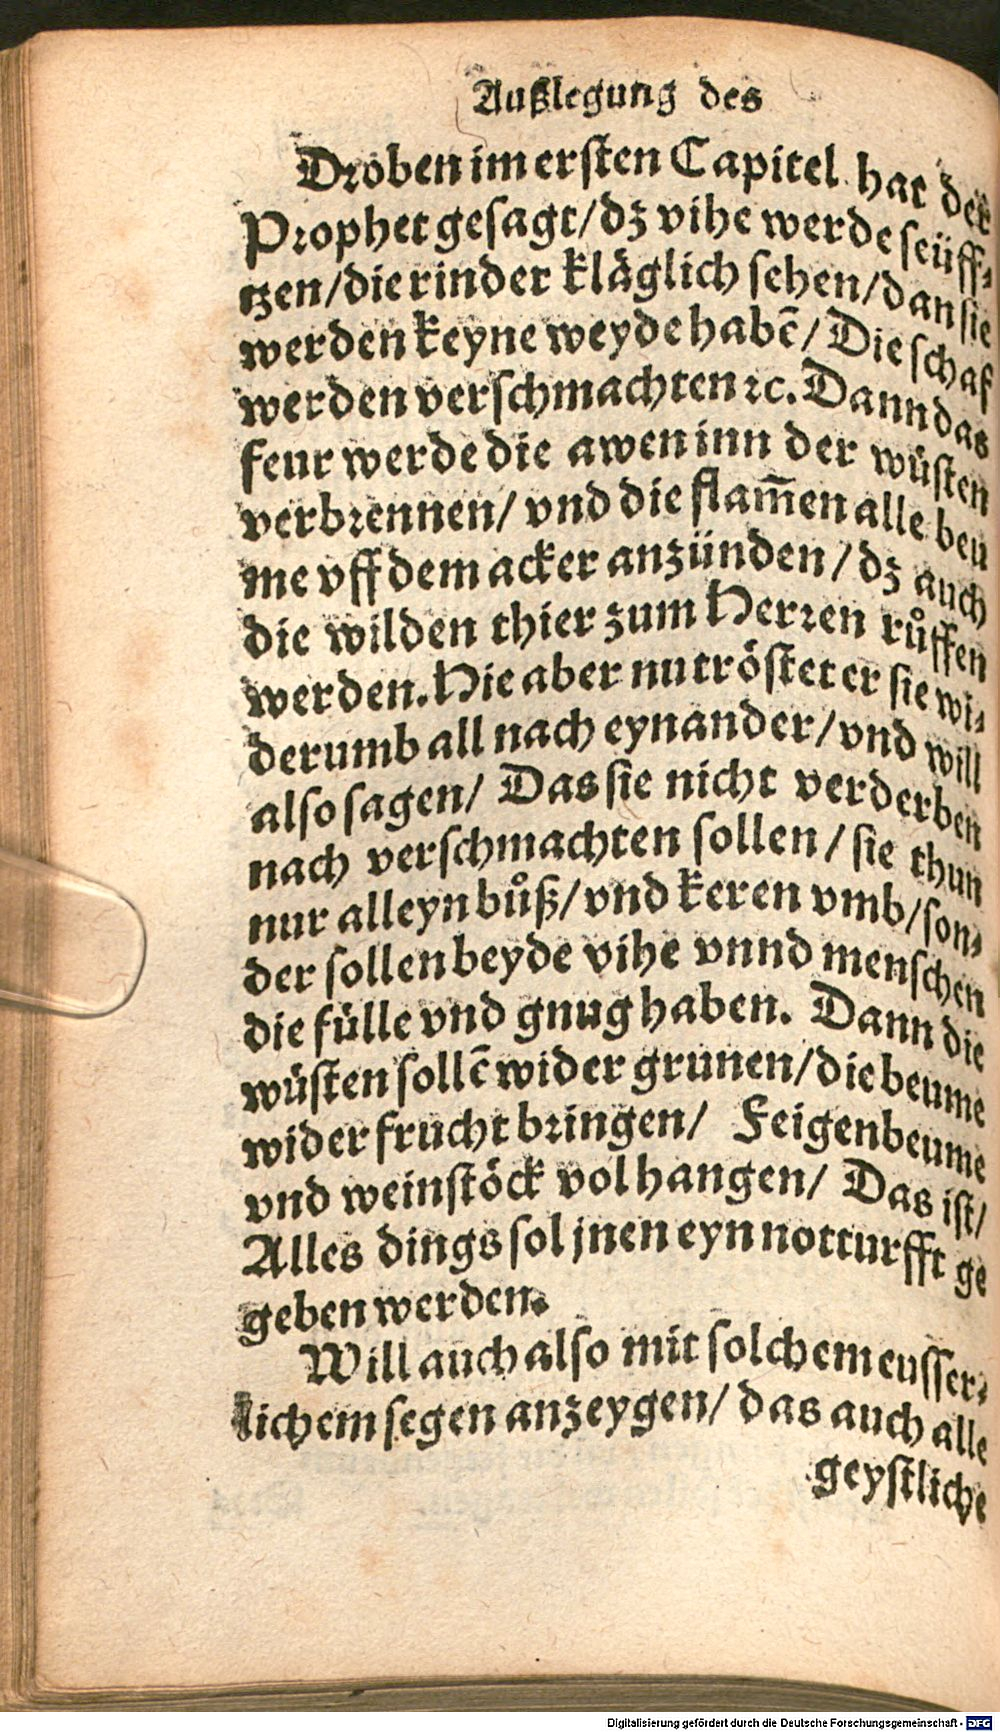 Außlegung des
Droben im ersten Capitel hat der
Prophet gesagt/dz vihe werde seüff-
tzen/die rinder kläglich sehen/dan sie
werden keyne weyde habē/Die schaf
werden verschmachten ꝛc. Dann das
feur werde die awen inn der wüsten
verbrennen/ vnd die flam̄en alle beu
me vff dem acker anzünden/dz auch
die wilden thier zum Herren růffen
werden. Hie aber nu tröstet er sie wi-
derumb all nach eynander/vnd will
also sagen/ Das sie nicht verderben
nach verschmachten sollen/sie thun
nur alleyn bůß/vnd keren vmb/son-
der sollen beyde vihe vnnd menschen
die fülle vnd gnug haben. Dann die
wüsten sollē wider grunen/die beume
wider frucht bringen/ Feigenbeume
vnd weinstöck vol hangen/ Das ist/
Alles dings sol jnen eyn notturfft ge
geben werden.
Will auch also mit solchem eusser-
lichem segen anzeygen/ das auch alle
geystliche
Digitalisierung gefördert durch die Deutsche Forschungsgemeinschaft - DFG